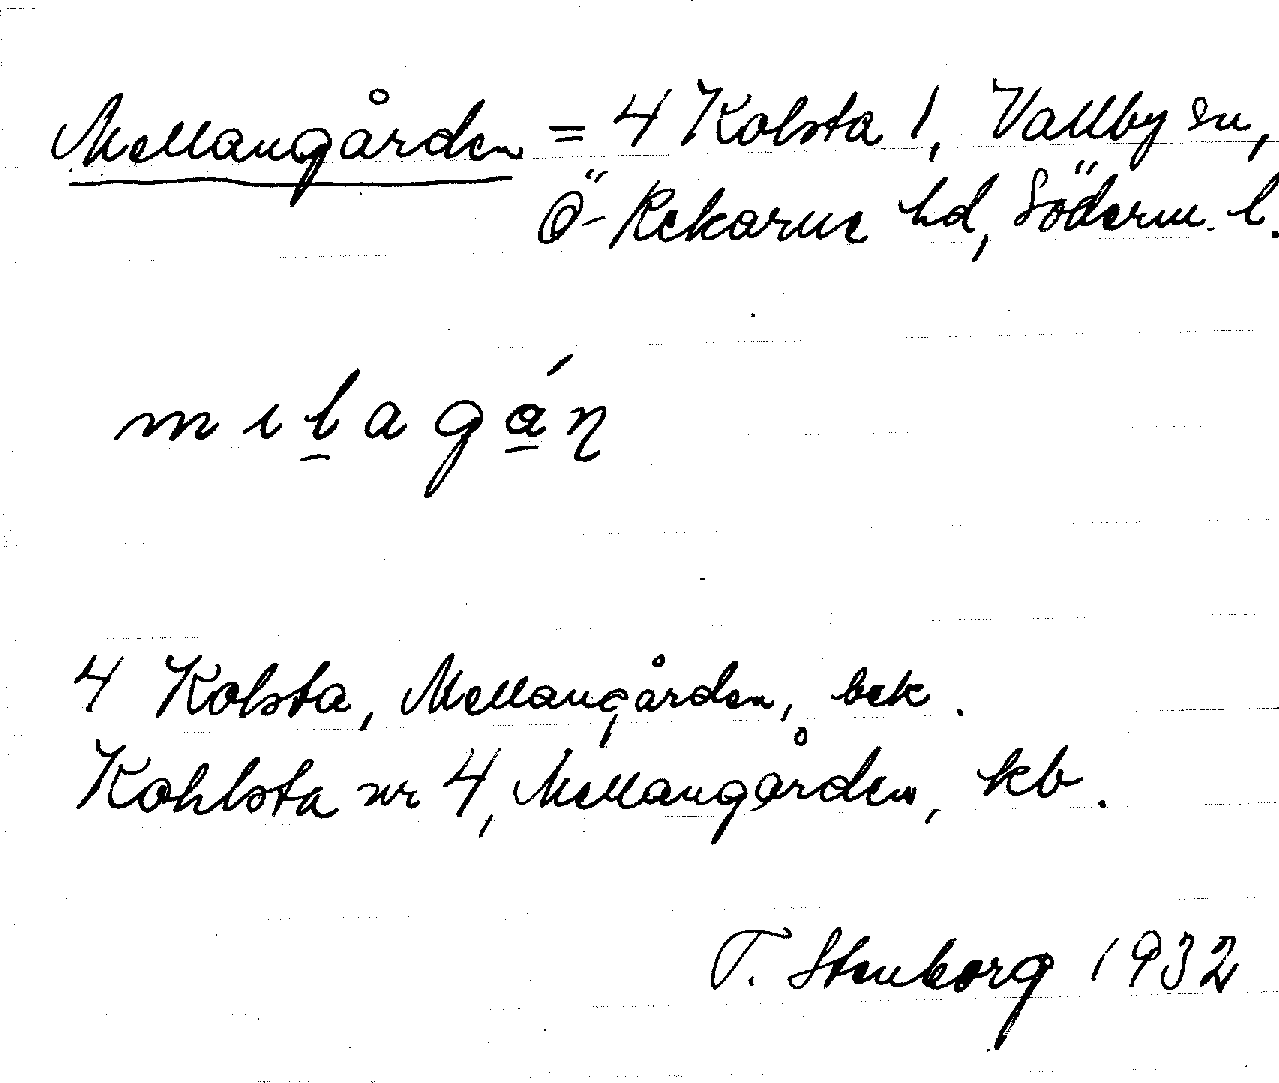 Mellangården = 4 Kolsta 1, Vallby sn,
Ö-Rekarne hd, Söderm. l.
mılagán
4 Kolsta, Mellangården, bek.
Kohlsta nr 4, Mellangården, kb.
T. Stenborg 1932